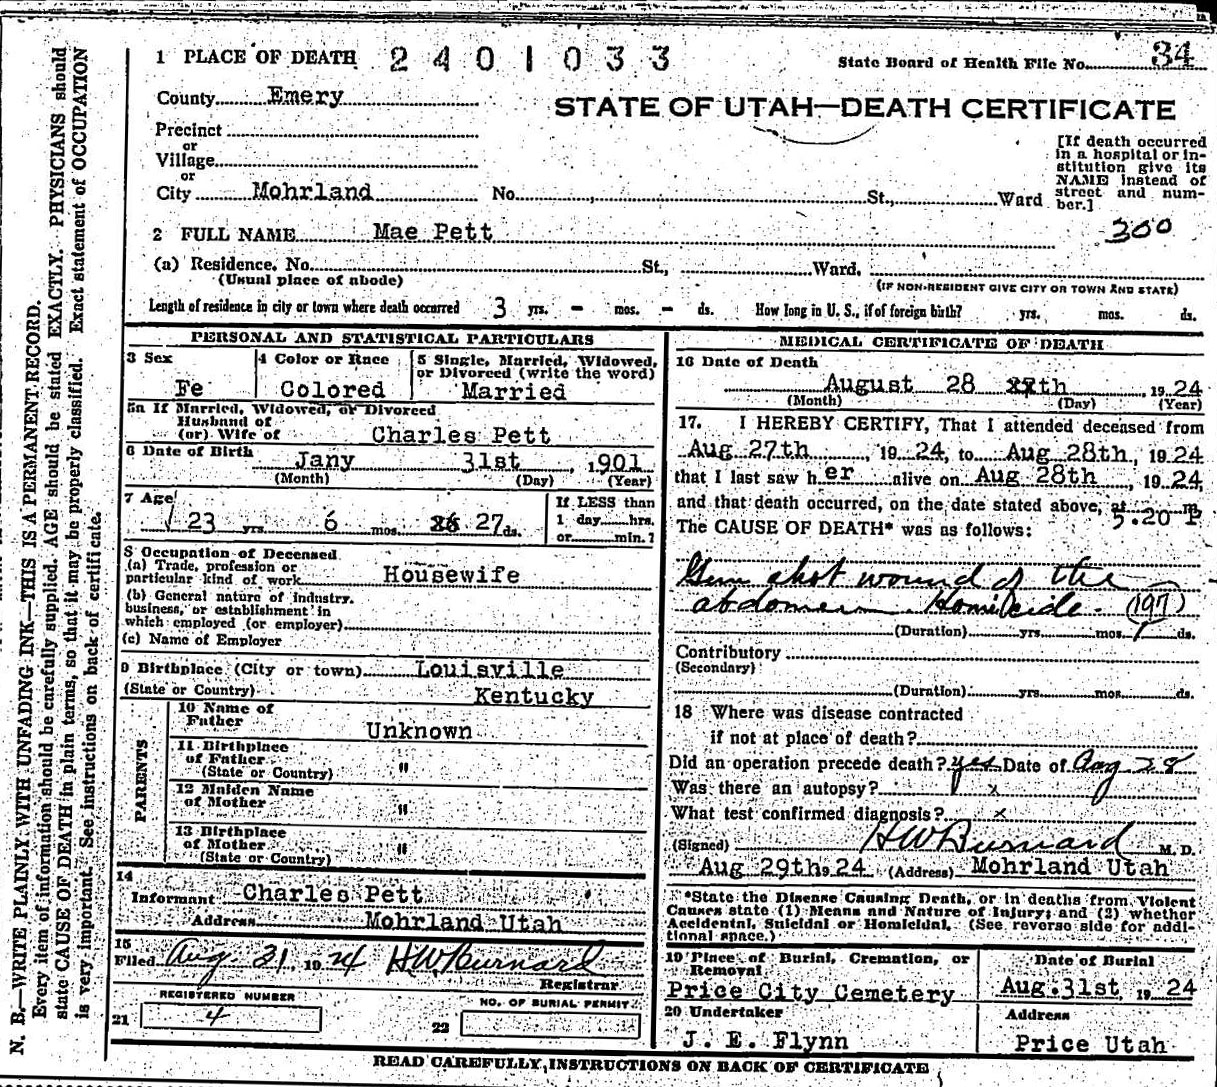 N. B.—WRITE PLAINLY WITH UNFADING INK—THIS IS A PERMANENT RECORD.
Every item of information should be carefully supplied. AGE should be stated EXACTLY. PHYSICIANS should
state CAUSE OF DEATH in plain terms, so that it may be properly classified. Exact statement of OCCUPATION
is very important. See instructions on back of certificate.
1 PLACE OF DEATH 2401033 State Board of Health File No. 34
County Emery
STATE OF UTAH—DEATH CERTIFICATE
Precinct
or
Village
or
City Mohrland No. St., Ward
[If death occurred
in a hospital or in-
stitution give its
NAME instead of
street and num-
ber.]
2 FULL NAME Mae Pett 300
(a) Residence. No. St., Ward.
(Usual place of abode) (IF NON-RESIDENT GIVE CITY OR TOWN AND STATE)
Length of residence in city or town where death occurred 3 yrs. - mos. - ds. How long in U. S., if of foreign birth? yrs. mos. ds.
PERSONAL AND STATISTICAL PARTICULARS
3 Sex
Fe
4 Color or Race
Colored
5 Single, Married, Widowed,
or Divorced (write the word)
Married
5a If Married, Widowed, or Divorced
Husband of
(or) Wife of Charles Pett
6 Date of Birth Jany 31st, 1901
(Month) (Day) (Year)
7 Age
23 yrs. 6 mos. 27 ds.
If LESS than
1 day hrs.
or min.?
8 Occupation of Deceased
(a) Trade, profession or
particular kind of work Housewife
(b) General nature of industry,
business, or establishment in
which employed (or employer)
(c) Name of Employer
9 Birthplace (City or town) Louisville
(State or Country) Kentucky
PARENTS
10 Name of
Father Unknown
11 Birthplace
of Father "
(State or Country)
12 Maiden Name
of Mother "
13 Birthplace
of Mother "
(State or Country)
14
Informant Charles Pett
Address Mohrland Utah
15
Filed Aug 31, 1924 H.W. Burnard
Registrar
REGISTERED NUMBER
21 4
NO. OF BURIAL PERMIT
22
MEDICAL CERTIFICATE OF DEATH
16 Date of Death
August 28 th, 1924
(Month) (Day) (Year)
17. I HEREBY CERTIFY, That I attended deceased from
Aug 27th, 1924, to Aug 28th, 1924
that I last saw her alive on Aug 28th, 1924,
and that death occurred, on the date stated above, at 5.20 P m
The CAUSE OF DEATH* was as follows:
Gun shot wound of the
abdomen Homicide. (197)
(Duration) yrs. mos. 1 ds.
Contributory
(Secondary)
(Duration) yrs. mos. ds.
18 Where was disease contracted
if not at place of death?
Did an operation precede death? yes Date of Aug 28
Was there an autopsy? x
What test confirmed diagnosis? x
(Signed) H W Burnard M. D.
Aug 29th 1924 (Address) Mohrland Utah
*State the Disease Causing Death, or in deaths from Violent
Causes state (1) Means and Nature of Injury; and (2) whether
Accidental, Suicidal or Homicidal. (See reverse side for addi-
tional space.)
19 Place of Burial, Cremation, or
Removal
Price City Cemetery
Date of Burial
Aug. 31st, 1924
20 Undertaker
J. E. Flynn
Address
Price Utah
READ CAREFULLY INSTRUCTIONS ON BACK OF CERTIFICATE